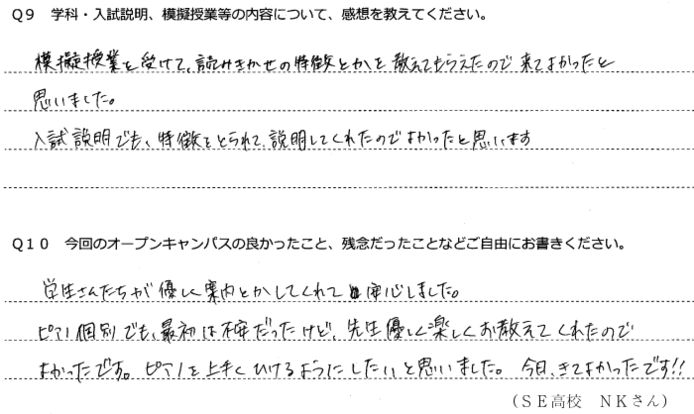 Q9 学科・入試説明、模擬授業等の内容について、感想を教えてください。
模擬授業を受けて、読みきかせの特徴とかを教えてもらえたので来てよかったと
思いました。
入試説明でも、特徴をとられて、説明してくれたのでよかったと思います
Q10 今回のオープンキャンパスの良かったこと、残念だったことなどご自由にお書きください。
学生さんたちが優しく案内とかしてくれて安心しました。
ピアノ個別でも、最初は不安だったけど、先生優しく楽しくお教えてくれたので
よかったです。ピアノを上手くひけるようにしたいと思いました。今日、きてよかったです!!
(SE高校 NKさん)